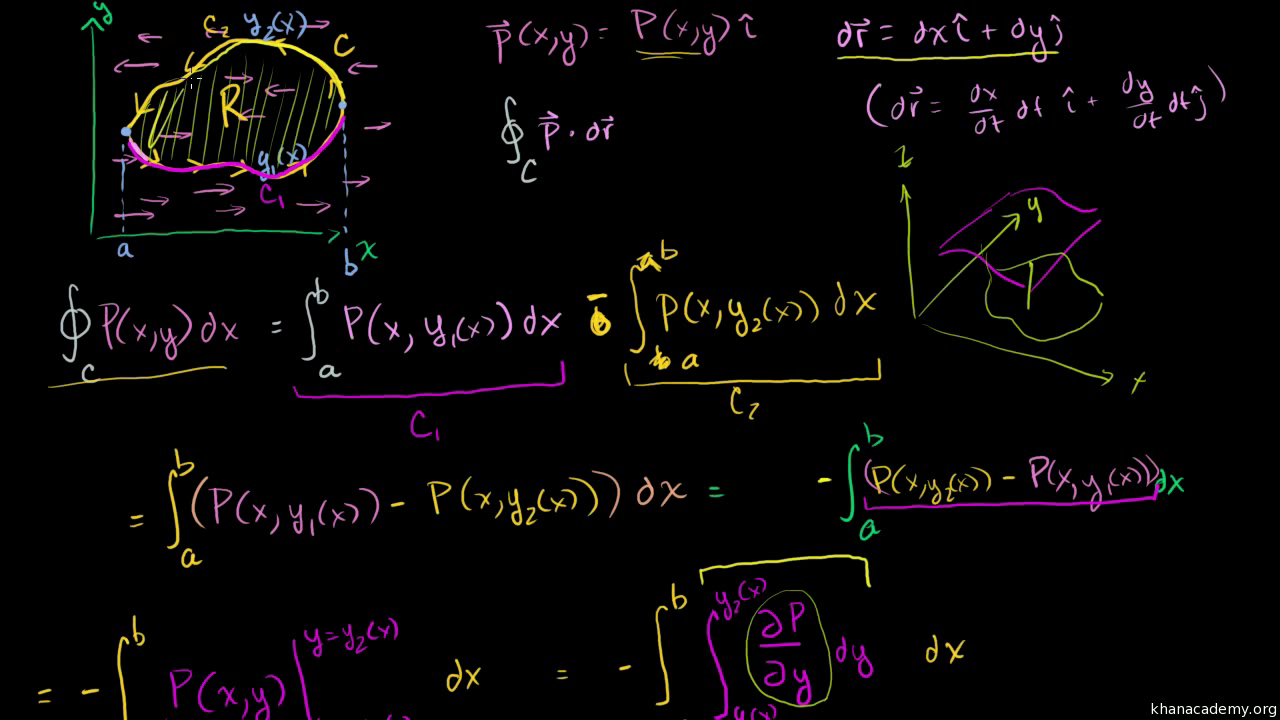 y
C₂ y₂(x)
C
R
y₁(x)
C₁
a
b
x
P⃗(x,y) = P(x,y) î
dr⃗ = dx î + dy ĵ
∮_C P⃗ · dr⃗
(dr⃗ = dx/dt dt î + dy/dt dt ĵ)
z
y
x
∮_C P(x,y) dx = ∫_a^b P(x, y₁(x)) dx - ∫_a^b P(x, y₂(x)) dx
C₁
C₂
= ∫_a^b (P(x, y₁(x)) - P(x, y₂(x))) dx = - ∫_a^b (P(x, y₂(x)) - P(x, y₁(x))) dx
= - ∫^b P(x,y) |^{y=y₂(x)} dx = - ∫^b ∫_{y₁(x)}^{y₂(x)} ∂P/∂y dy dx
khanacademy.org